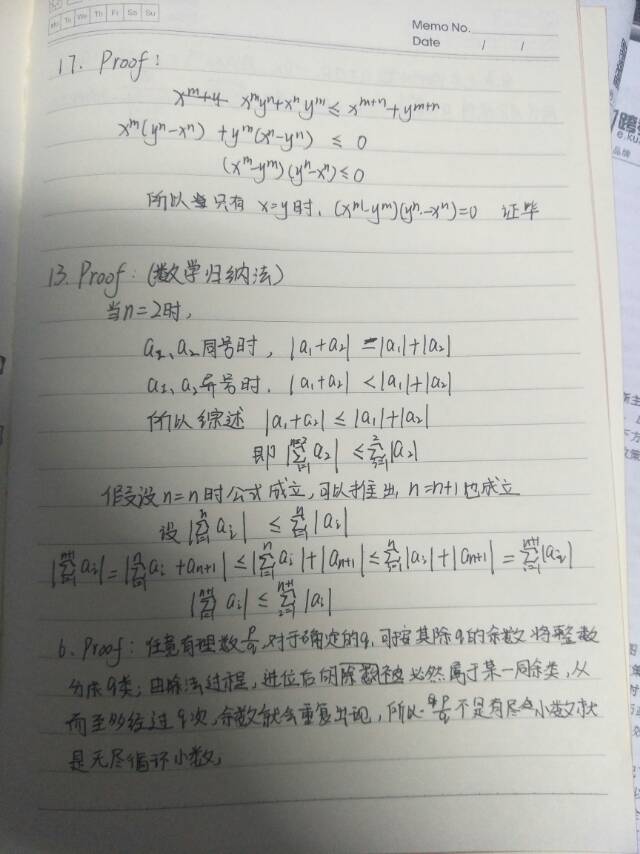 Mo Tu We Th Fr Sa Su
Memo No.
Date / /
17. Proof:
x^m y^n + x^n y^m ≤ x^{m+n} + y^{m+n}
x^m(y^n-x^n) + y^m(x^n-y^n) ≤ 0
(x^m-y^m)(y^n-x^n) ≤ 0
所以 只有 x=y时, (x^m-y^m)(y^n-x^n)=0 证毕
13. Proof: (数学归纳法)
当n=2时,
a₂、a₂同号时, |a₁+a₂| = |a₁|+|a₂|
a₁、a₂异号时, |a₁+a₂| < |a₁|+|a₂|
所以综述 |a₁+a₂| ≤ |a₁|+|a₂|
即 |∑a₂| ≤ ∑|a₂|
假设设n=n时公式成立,可以推出, n=n+1也成立
设 |∑_{i=1}^{n} a_i| ≤ ∑_{i=1}^{n} |a_i|
|∑_{i=1}^{n+1} a_i| = |∑_{i=1}^{n} a_i + a_{n+1}| ≤ |∑_{i=1}^{n} a_i| + |a_{n+1}| ≤ ∑_{i=1}^{n} |a_i| + |a_{n+1}| = ∑_{i=1}^{n+1} |a_i|
|∑_{i=1}^{n+1} a_i| ≤ ∑_{i=1}^{n+1} |a_i|
6. Proof: 任意有理数p/q,对于确定的q,可按其除q的余数将整数
分成q类;由除法过程,进位后的除数被必然属于某一同余类,从
而至多经过q次,余数就会重复出现,所以 p/q不是有尽小数就
是无尽循环小数,
跨
e.ku
品牌